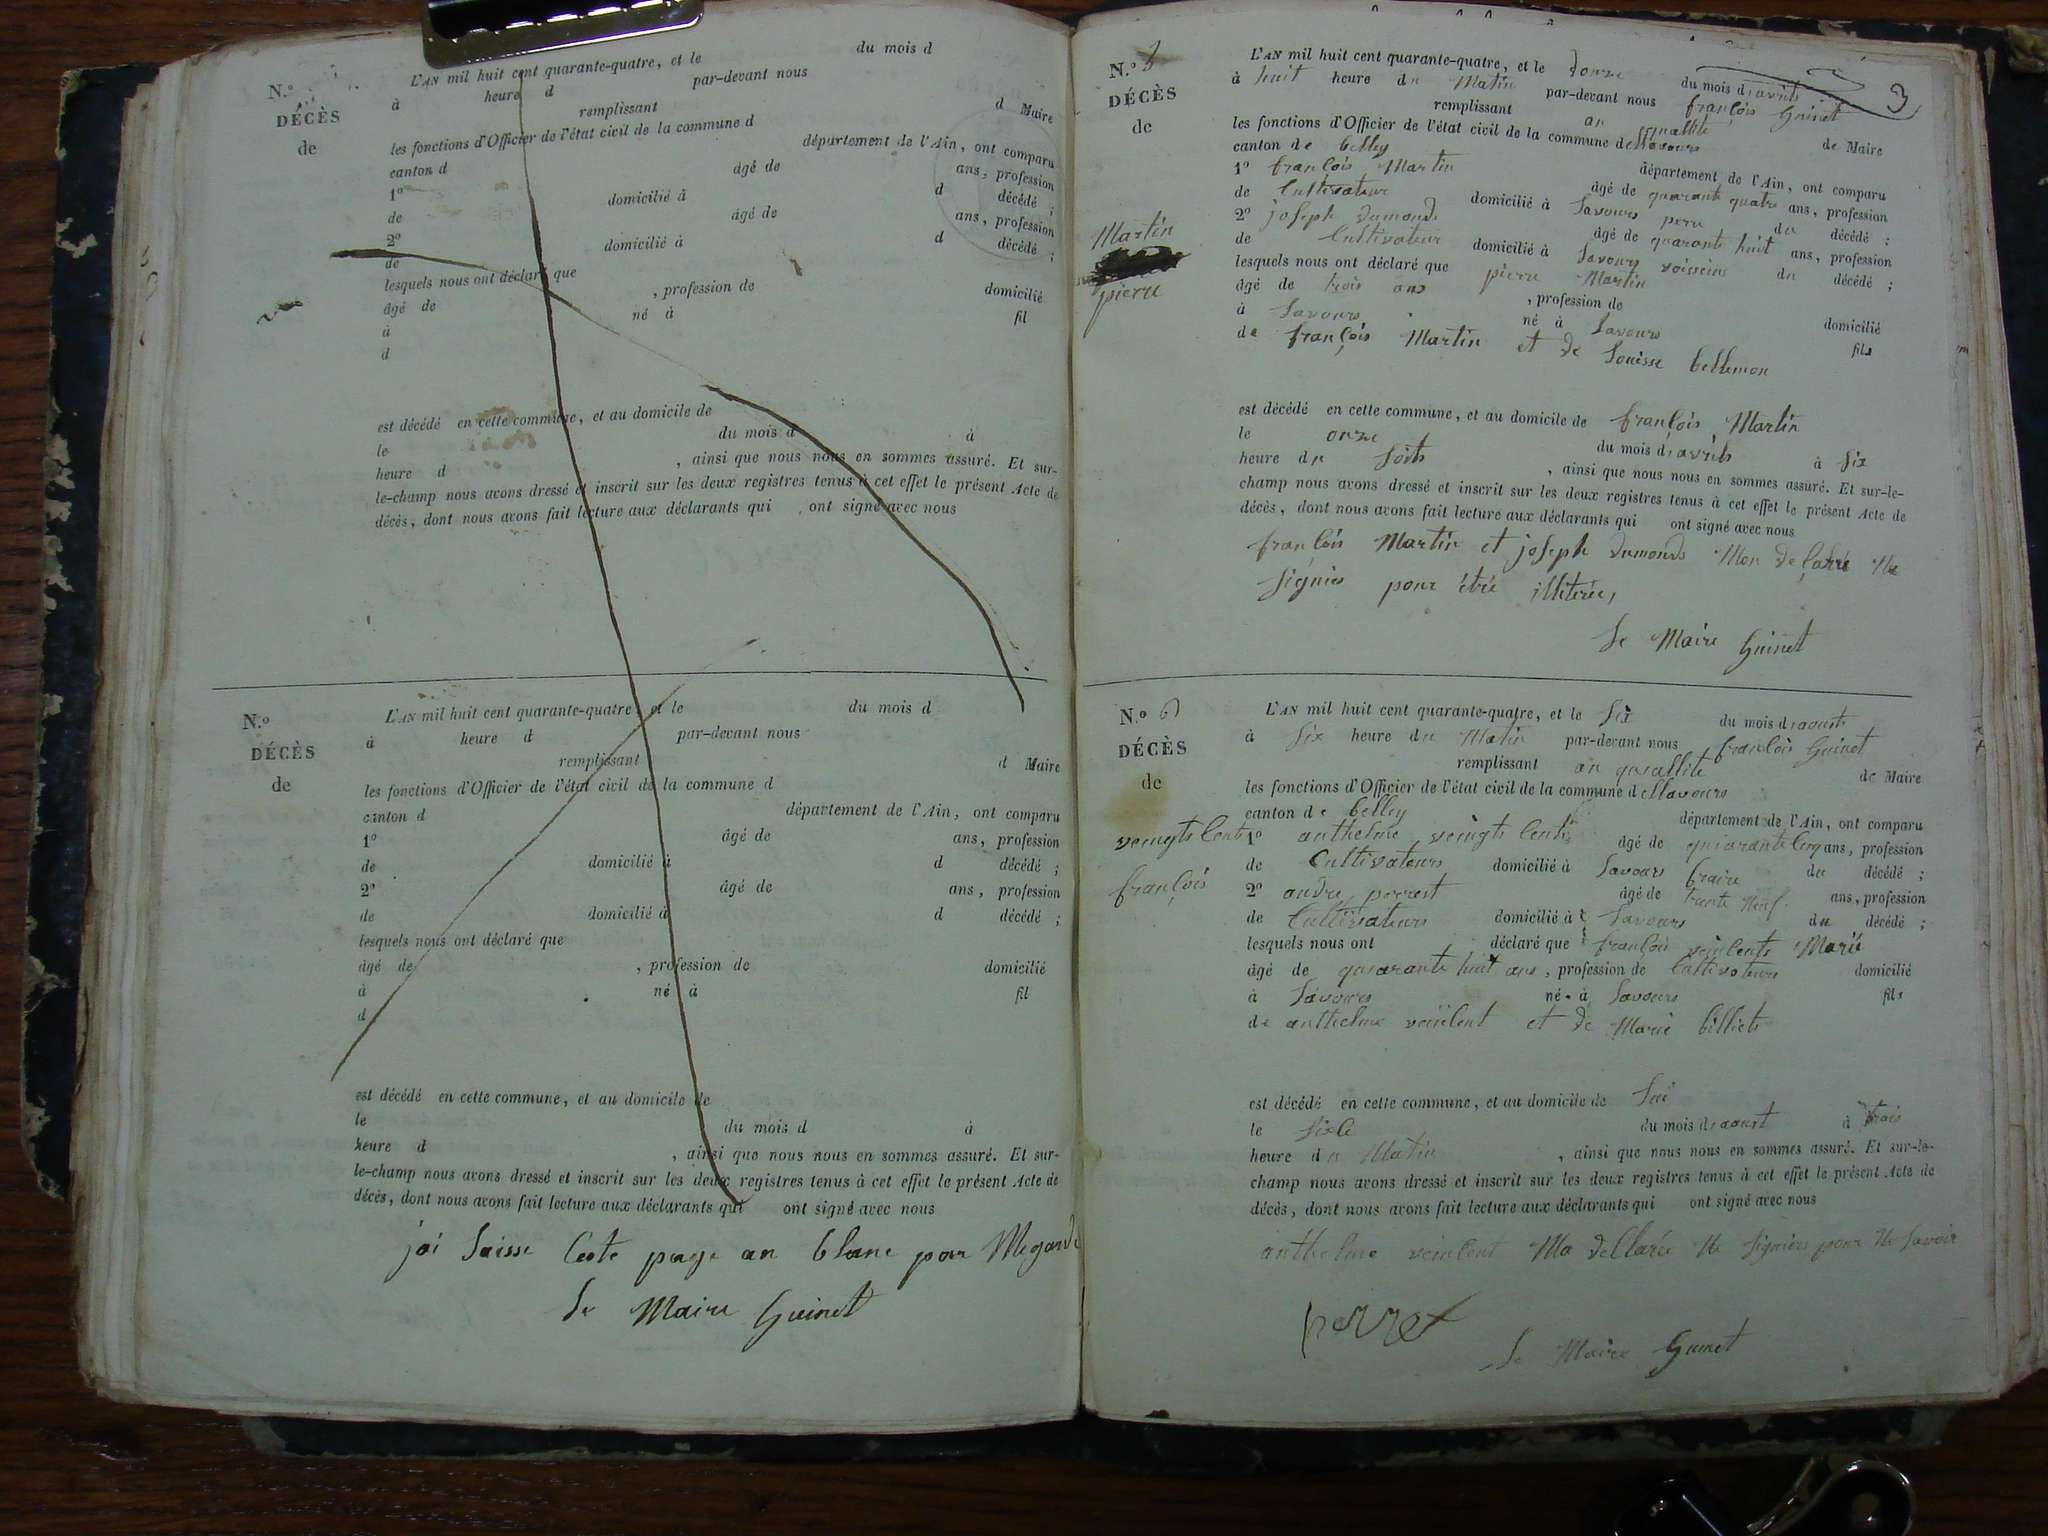 N.º
DÉCÈS
de
L'AN mil huit cent quarante-quatre, et le du mois d
à heure d par-devant nous
remplissant d Maire
les fonctions d'Officier de l'état civil de la commune d
canton d département de l'Ain, ont comparu
1º âgé de ans, profession
de domicilié à d décédé ;
2º âgé de ans, profession
de domicilié à d décédé ;
lesquels nous ont déclaré que
âgé de , profession de domicilié
à né à fil
d
est décédé en cette commune, et au domicile de
le du mois d à
heure d , ainsi que nous nous en sommes assuré. Et sur-
le-champ nous avons dressé et inscrit sur les deux registres tenus à cet effet le présent Acte de
décès, dont nous avons fait lecture aux déclarants qui ont signé avec nous
N.º
DÉCÈS
de
L'AN mil huit cent quarante-quatre, et le du mois d
à heure d par-devant nous
remplissant d Maire
les fonctions d'Officier de l'état civil de la commune d
canton d département de l'Ain, ont comparu
1º âgé de ans, profession
de domicilié à d décédé ;
2º âgé de ans, profession
de domicilié à d décédé ;
lesquels nous ont déclaré que
âgé de , profession de domicilié
à né à fil
d
est décédé en cette commune, et au domicile de
le du mois d à
heure d , ainsi que nous nous en sommes assuré. Et sur-
le-champ nous avons dressé et inscrit sur les deux registres tenus à cet effet le présent Acte de
décès, dont nous avons fait lecture aux déclarants qui ont signé avec nous
jai Laisse Cete page an blanc par Megarde
Le Maire Guinet
3
N.º
DÉCÈS
de
Martin
pierre
L'AN mil huit cent quarante-quatre, et le douze du mois d'avrils
à huit heure du Matin par-devant nous françois Guinet
remplissant an quallite de Maire
les fonctions d'Officier de l'état civil de la commune de Lavours
canton de belley département de l'Ain, ont comparu
1º françois Martin âgé de quarante quatre ans, profession
de Cultivateur domicilié à Lavours pere du décédé ;
2º joseph dumonds âgé de quarante huit ans, profession
de Cultivateur domicilié à Lavours voisseins du décédé ;
lesquels nous ont déclaré que pierre Martin
âgé de trois ans , profession de domicilié
à Lavours né à Lavours fils
de françois Martin et de Louisse bellemon
est décédé en cette commune, et au domicile de françois Martin
le onze du mois d'avrils à six
heure du Soits , ainsi que nous nous en sommes assuré. Et sur-le-
champ nous avons dressé et inscrit sur les deux registres tenus à cet effet le présent Acte de
décès, dont nous avons fait lecture aux déclarants qui ont signé avec nous
françois Martin et joseph dumonds Mon de Ne
Signies pour être illiterée,
Le Maire Guinet
N.º 6
DÉCÈS
de
veingts Cents
françois
L'AN mil huit cent quarante-quatre, et le Six du mois d'aousts
à Six heure du Matin par-devant nous françois Guinet
remplissant an quallite de Maire
les fonctions d'Officier de l'état civil de la commune de Lavours
canton de belley département de l'Ain, ont comparu
1º anthelme veingts Cents âgé de quarante Cinq ans, profession
de Cultivateurs domicilié à Lavours fraire du décédé ;
2º andre perret âgé de trante Neuf ans, profession
de Cultivateurs domicilié à Lavours du décédé ;
lesquels nous ont déclaré que françois veincents Marié
âgé de quarante huit ans, profession de Cultivateurs domicilié
à Lavours né à Lavours fils
de anthelme veincent et de Marie billiets
est décédé en cette commune, et au domicile de Lui
le Sixe du mois d'aoust à trois
heure du Matin , ainsi que nous nous en sommes assuré. Et sur-le-
champ nous avons dressé et inscrit sur les deux registres tenus à cet effet le présent Acte de
décès, dont nous avons fait lecture aux déclarants qui ont signé avec nous
anthelme veincent Ma dellarée Ne Signiers pour Ne Savoir
perret
Le Maire Guinet